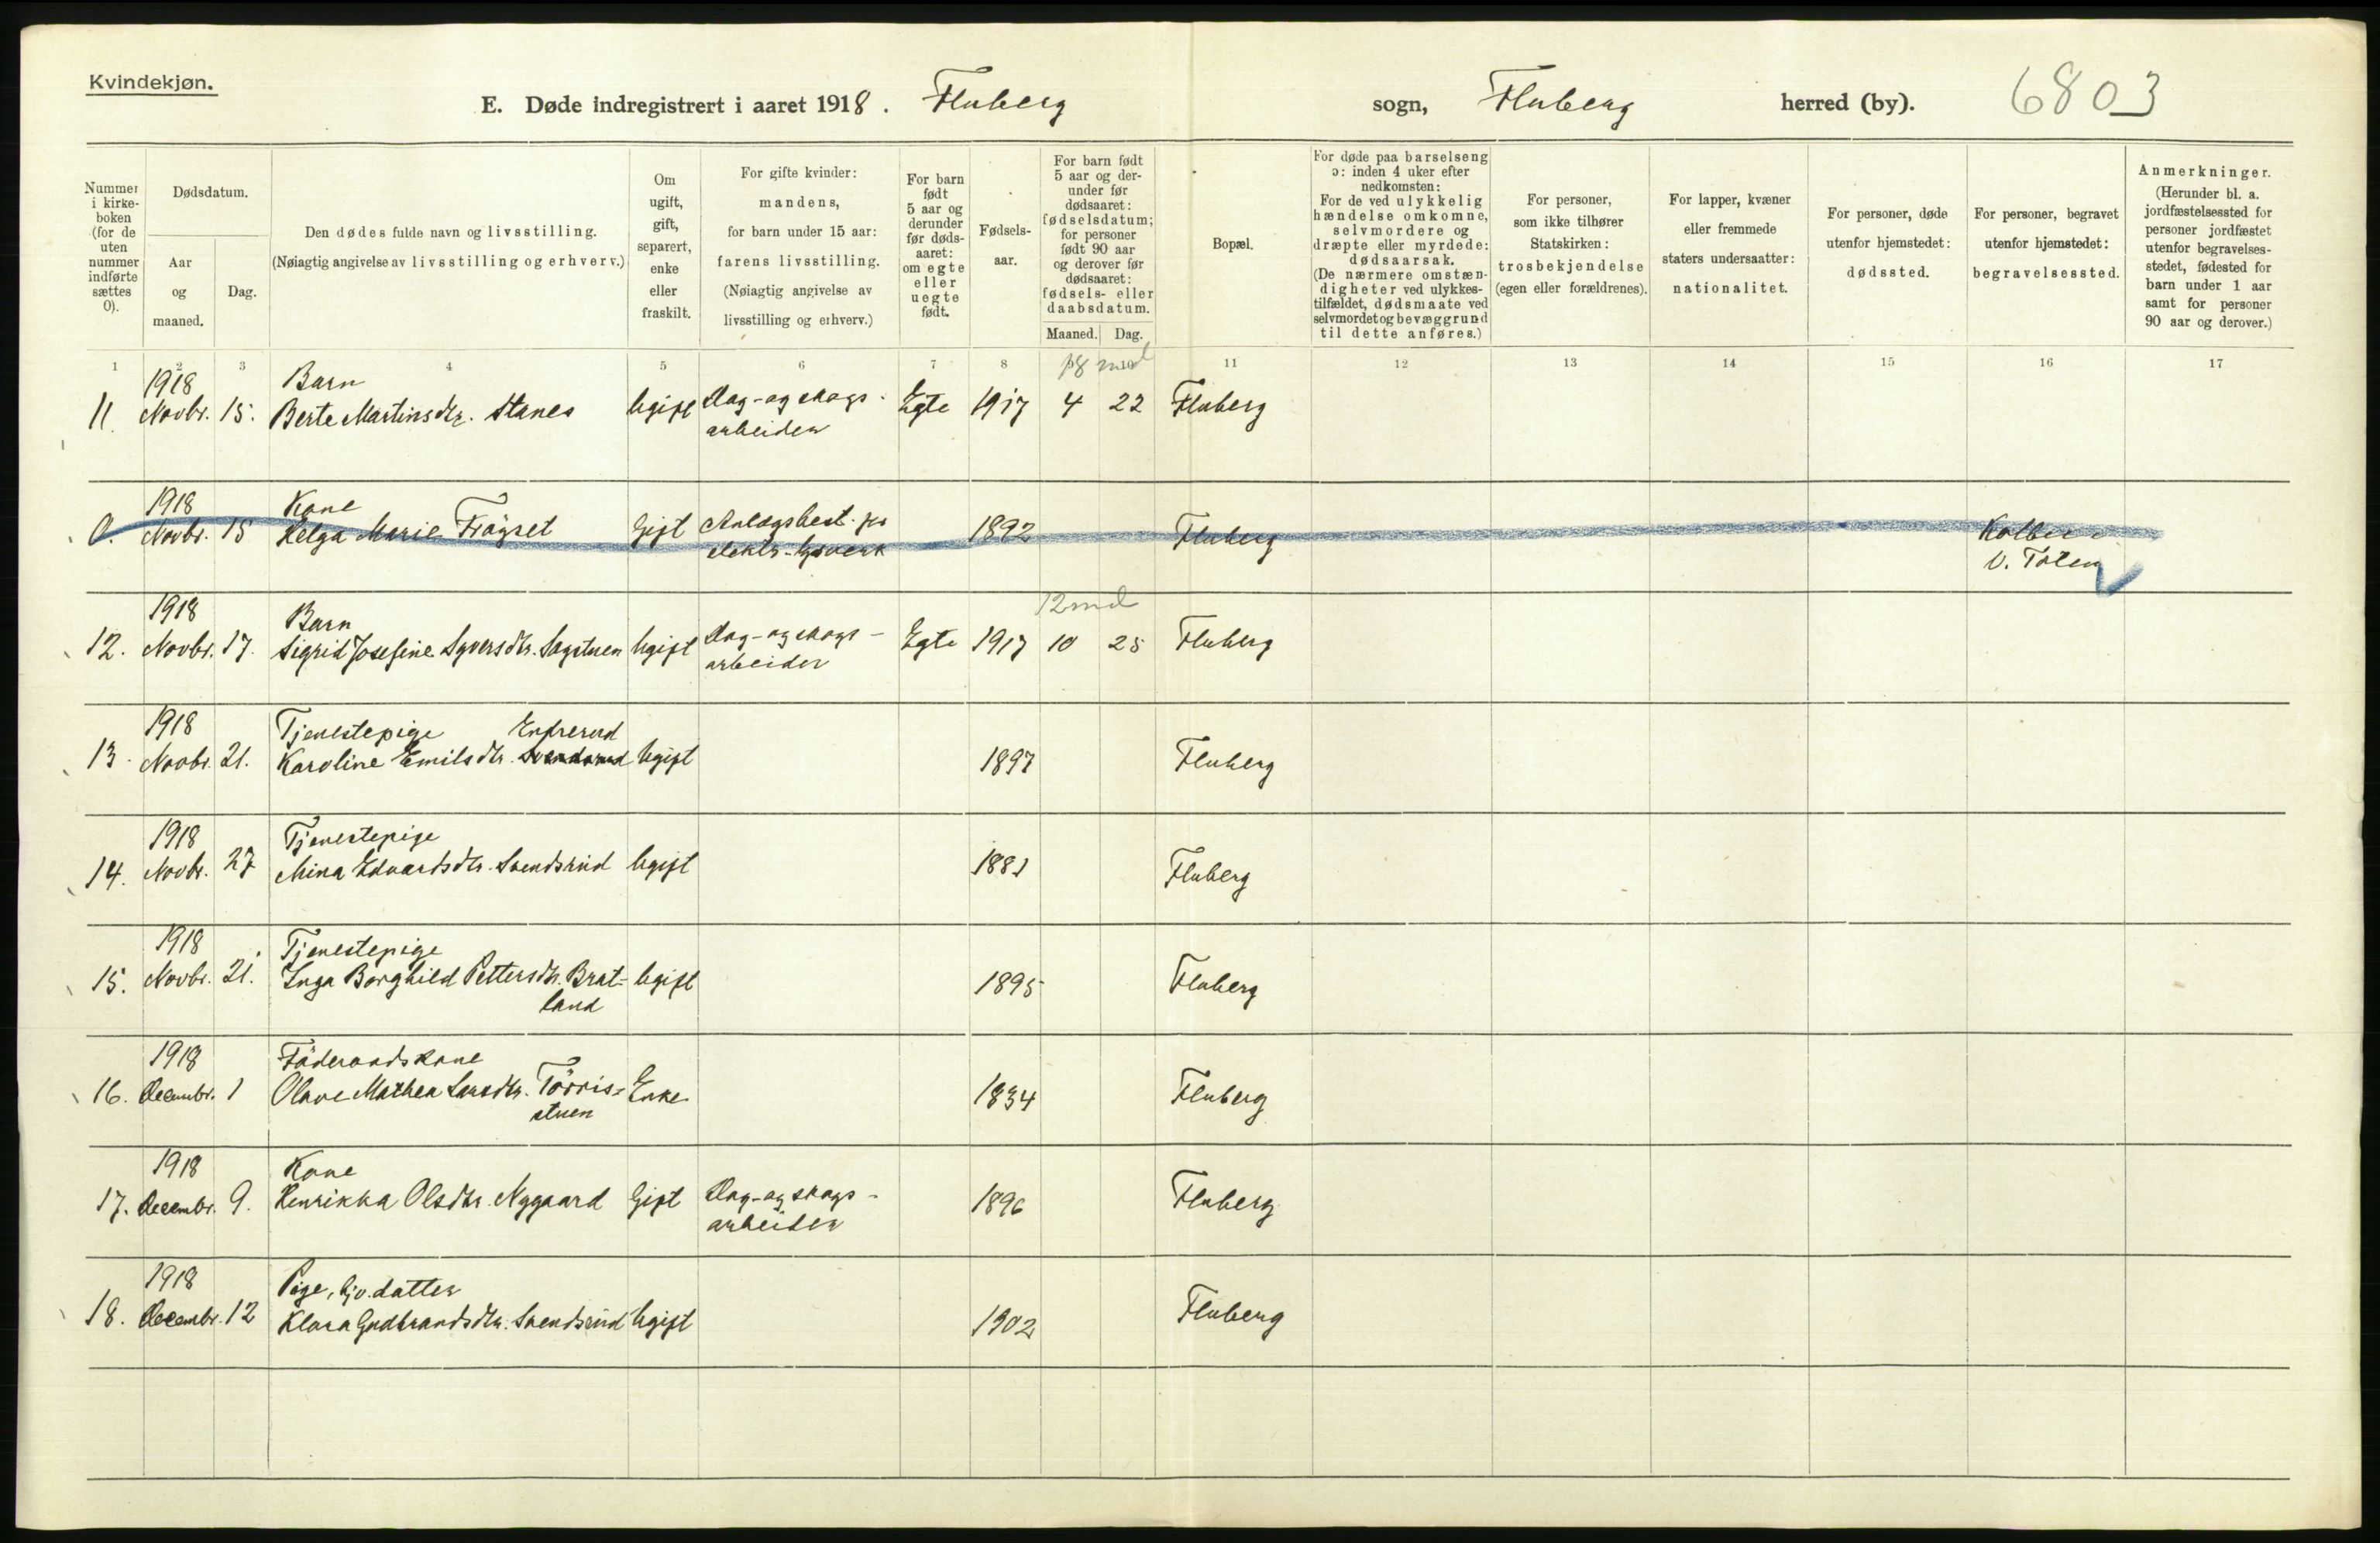 Kvindekjøn.
E. Døde indregistrert i aaret 1918. Fluberg sogn, Fluberg herred (by). 6803
Nummer i kirke-boken (for de uten nummer indførte sættes 0).
Dødsdatum.
Aar og maaned.
Dag.
Den dødes fulde navn og livsstilling.
(Nøiagtig angivelse av livsstilling og erhverv.)
Om ugift, gift, separert, enke eller fraskilt.
For gifte kvinder: mandens, for barn under 15 aar: farens livsstilling.
(Nøiagtig angivelse av livsstilling og erhverv.)
For barn født 5 aar og derunder før døds-aaret: om egte eller uegte født.
Fødsels-aar.
For barn født 5 aar og der-under før dødsaaret: fødselsdatum; for personer født 90 aar og derover før dødsaaret: fødsels- eller daabsdatum.
Maaned. Dag.
Bopæl.
For døde paa barselseng ɔ: inden 4 uker efter nedkomsten:
For de ved ulykkelig hændelse omkomne, selvmordere og dræpte eller myrdede: dødsaarsak.
(De nærmere omstæn-digheter ved ulykkes-tilfældet, dødsmaate ved selvmordet og bevæggrund til dette anføres.)
For personer, som ikke tilhører Statskirken: trosbekjendelse (egen eller forældrenes).
For lapper, kvæner eller fremmede staters undersaatter: nationalitet.
For personer, døde utenfor hjemstedet: dødssted.
For personer, begravet utenfor hjemstedet: begravelsessted.
Anmerkninger.
(Herunder bl. a. jordfæstelsessted for personer jordfæstet utenfor begravelses-stedet, fødested for barn under 1 aar samt for personer 90 aar og derover.)
1 2 3 4 5 6 7 8 11 12 13 14 15 16 17
1918 Barn 18 md
11. Novbr. 15. Berte Martinsdtr. Stanes Ugift Dag- og skogs- Egte 1917 4 22 Fluberg
arbeider
1918 Kone
0. Novbr. 15 Helga Marie Frøgset Gift Anlægsbest. 1892 Fluberg Kolbu
elektr. V. Toten
1918 Barn 12 md
12. Novbr. 17. Sigrid Josefine Syversdtr. Sagstuen Ugift Dag- og skogs- Egte 1917 10 25 Fluberg
arbeider
1918 Tjenestepige
13. Novbr. 21. Karoline Emilsdtr. Svendsrud Ugift 1897 Fluberg
1918 Tjenestepige
14. Novbr. 27 Mina Edvardsdtr. Svendsrud Ugift 1881 Fluberg
1918 Tjenestepige
15. Novbr. 21. Inga Borghild Pettersdtr. Brat- Ugift 1895 Fluberg
land
1918 Föderaadskone
16. Decembr. 1 Olave Mathea Larsdtr. Törris- Enke 1834 Fluberg
stuen
1918 Kone
17. Decembr. 9. Henrikka Olsdtr. Nygaard Gift Dag- og skogs- 1896 Fluberg
arbeider
1918 Pige, Gjv. datter
18. Decembr. 12 Klara Gudbrandsdtr. Svendsrud Ugift 1902 Fluberg